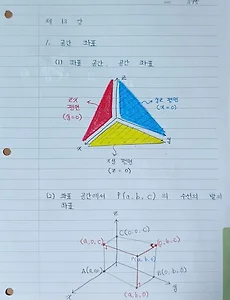 제 13 강
1. 공간 좌표
(1) 좌표 공간 공간 좌표
z
zx 평면 (y=0)
yz 평면 (x=0)
x
y
xy 평면 (z = 0)
(2) 좌표 공간에서 P(a, b, c) 의 수선의 발의 좌표
z
C(0, 0, c)
(a, 0, c)
(0, b, c)
P(a, b, c)
B(0, b, 0)
x
y
(a, b, 0)